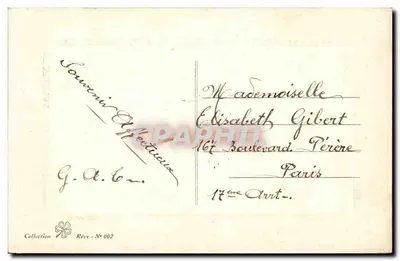 Souvenir Affectueux
G. A. C.
Mademoiselle
Elisabeth Gibert
167 Boulevard Péreire
Paris
17ème Arrt.
Collection Rêve - N° 002